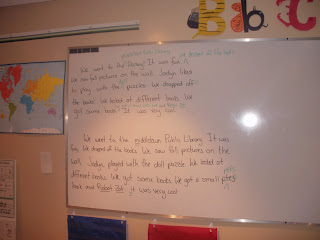 B a b C
Middletown Public Library
We went to the library! It was fun.
We saw fall pictures on the wall. Jaelyn likes
to play with the puzzles. We dropped off
the books. We looked at different books. We
got some books! It was very cool.
We went to the middletown Public Library. It was
fun. We droped of the books. We saw fall pictures on the
wall. Jaelyn played with the doll puzzle. We looked at
different books. We got some books. We got a small
book and it was very cool